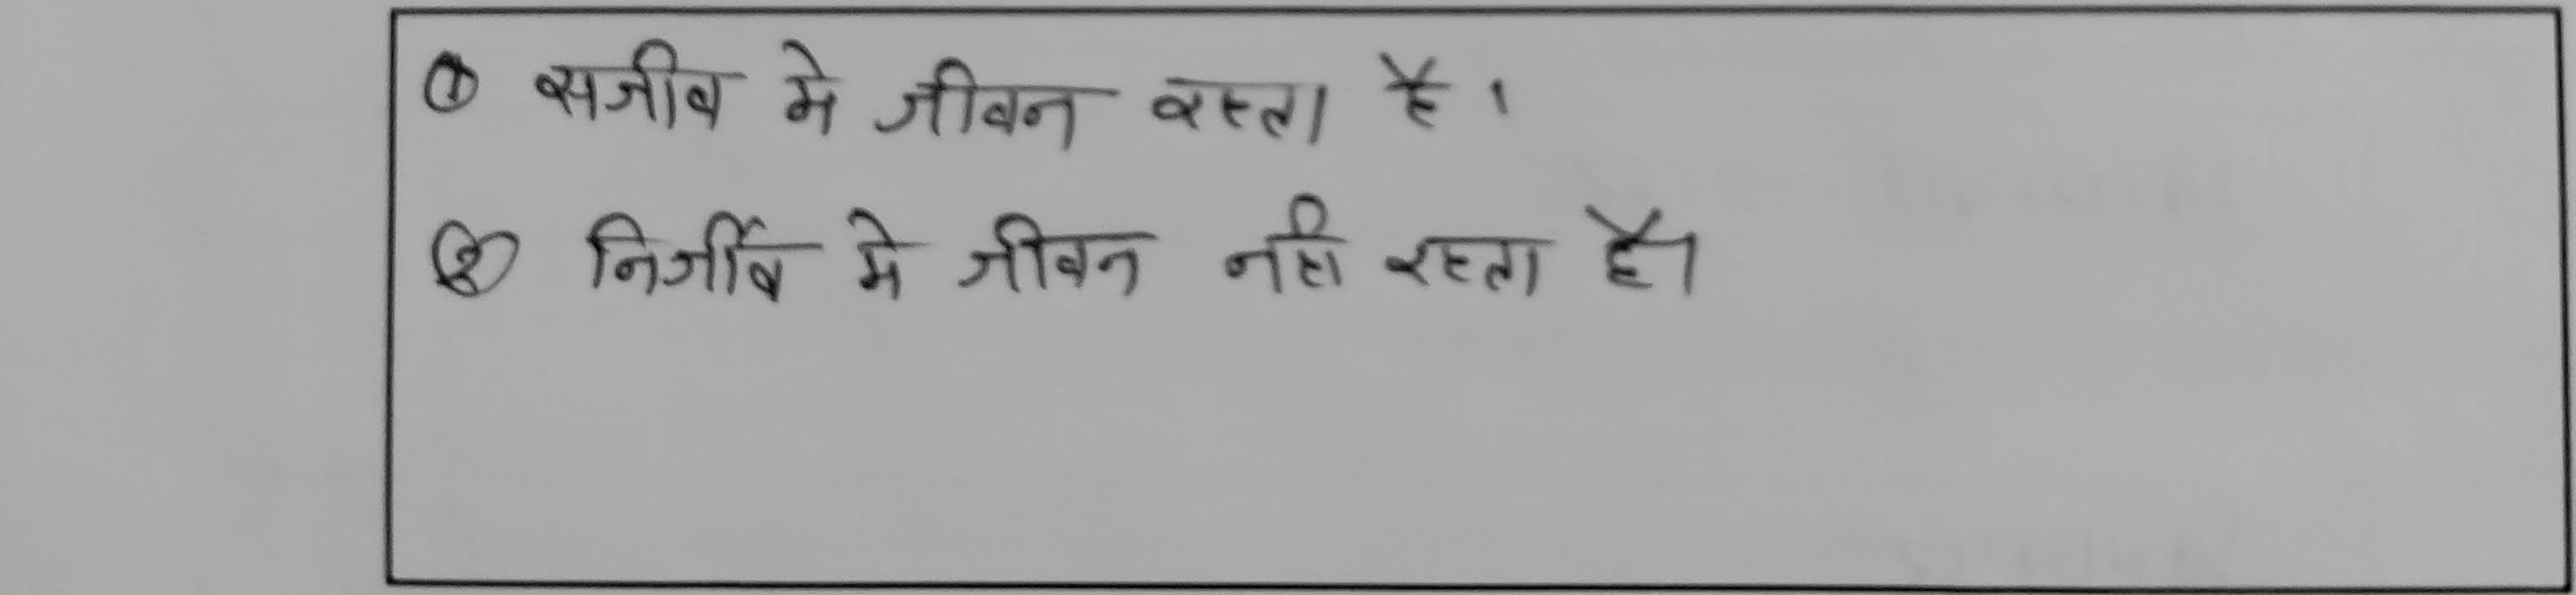 ① सजीव मे जीवन रहता है ।
② निर्जीव मे जीवन नही रहता है।